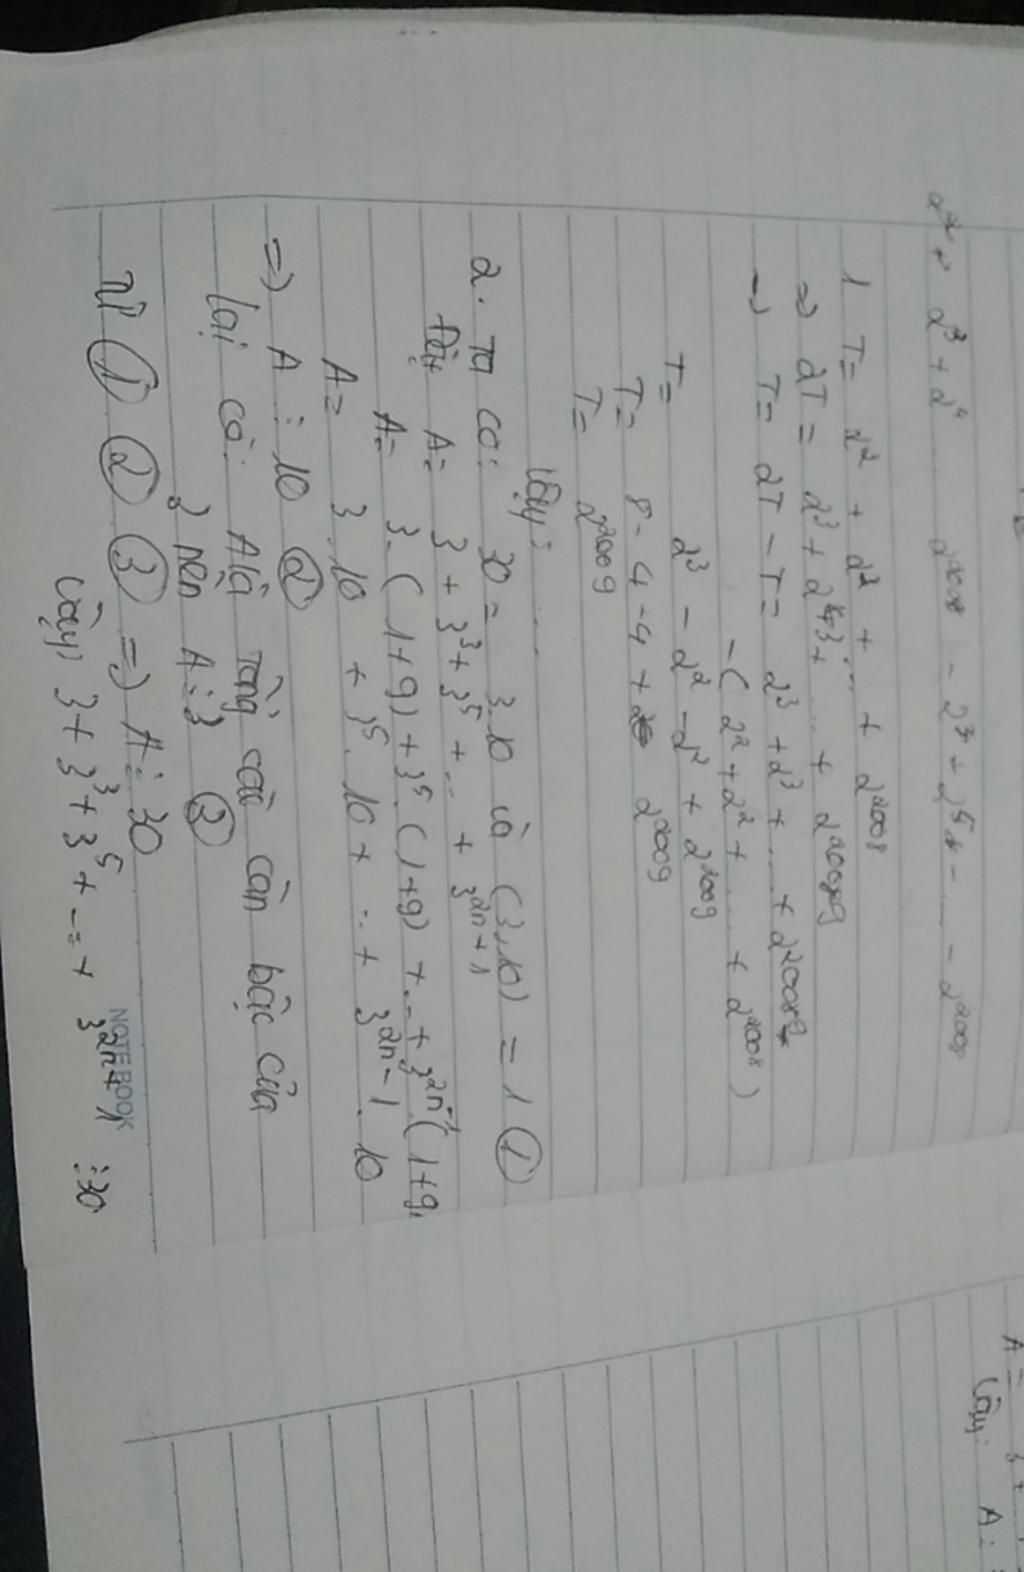 2² + 2³ + 2⁴ ..... 2²⁰⁰⁸ - 2³ - 2⁵ - .... - 2²⁰⁰⁸
1 T= 2² + 2² + ... + 2²⁰⁰⁸
=) 2T = 2³ + 2³ + ... + 2²⁰⁰⁹
=) T= 2T - T= 2³ + 2³ + ... + 2²⁰⁰⁹
- ( 2² + 2² + ... + 2²⁰⁰⁸ )
T= 2³ - 2² - 2² + 2²⁰⁰⁹
T= 8 - 4 - 4 + 2²⁰⁰⁹
T= 2²⁰⁰⁹
Vậy: .....
2. Ta có: 30 = 3.10 và (3,10) = 1 ①
Đặt A= 3 + 3³ + 3⁵ + ... + 3²ⁿ⁺¹
A= 3.(1+9) + 3⁵(1+9) + ... + 3²ⁿ⁻¹(1+9)
A= 3.10 + 3⁵.10 + ... + 3²ⁿ⁻¹.10
=) A ⋮ 10 ②
lại có: A là tổng các căn bậc của
2 nên A ⋮ 3 ③
Từ ① ② ③ =) A ⋮ 30
Vậy: 3 + 3³ + 3⁵ + ... + 3²ⁿ⁺¹ ⋮ 30
NOTEBOOK
A = 3 +
Vậy: A